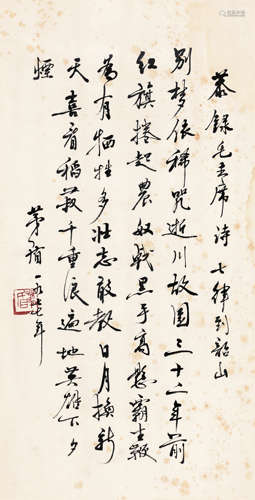 恭録毛主席诗 七律到韶山
别梦依稀咒逝川故园三十二年前
红旗捲起農奴戟黑手高懸霸主鞭
为有牺牲多壮志敢教日月换新
天喜看稻菽千重浪遍地英雄下夕
煙
茅盾 一九七七年